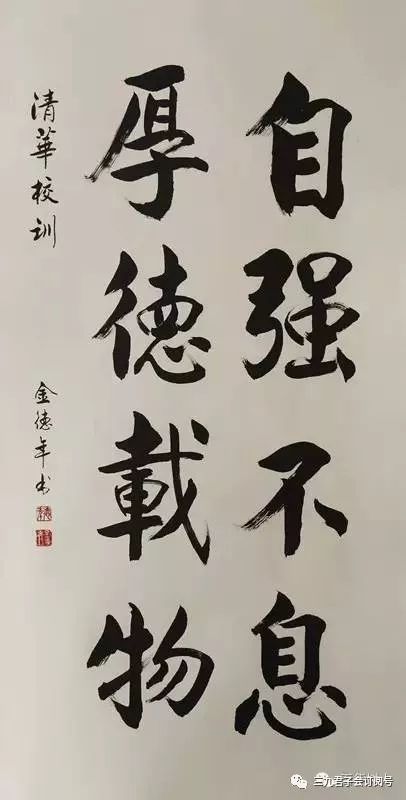 自强不息
厚德載物
清華校训
金德年书
三九君子会订阅号